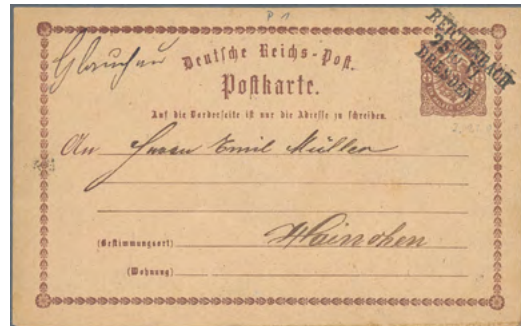 P 1
Glauchau
Deutsche Reichs-Post.
Postkarte.
Auf die Vorderseite ist nur die Adresse zu schreiben.
An Herrn Emil Müller
Hainichen
(Bestimmungsort)
(Wohnung)
DRESDEN